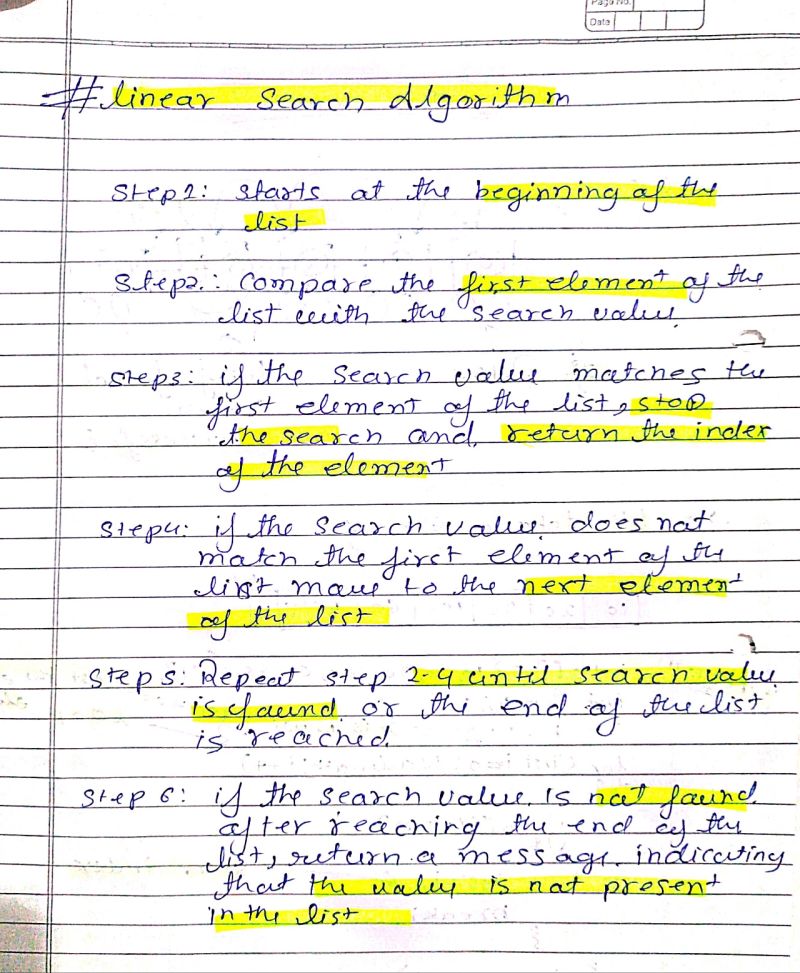 Page No.
Date
# linear Search Algorithm
Step1: starts at the beginning of the
list
Step2.: Compare the first element of the
list with the search value.
Step3: if the search value matches the
first element of the list, stop
the search and return the index
of the element
Step4: if the search value does not
match the first element of the
list move to the next element
of the list
Step 5: Repeat step 2-4 until search value
is found or the end of the list
is reached.
Step 6: if the search value is not found
after reaching the end of the
list, return a message indicating
that the value is not present
in the list